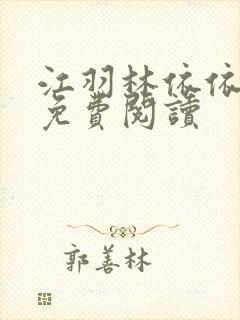 江羽林依依
免費閱讀
郭善林